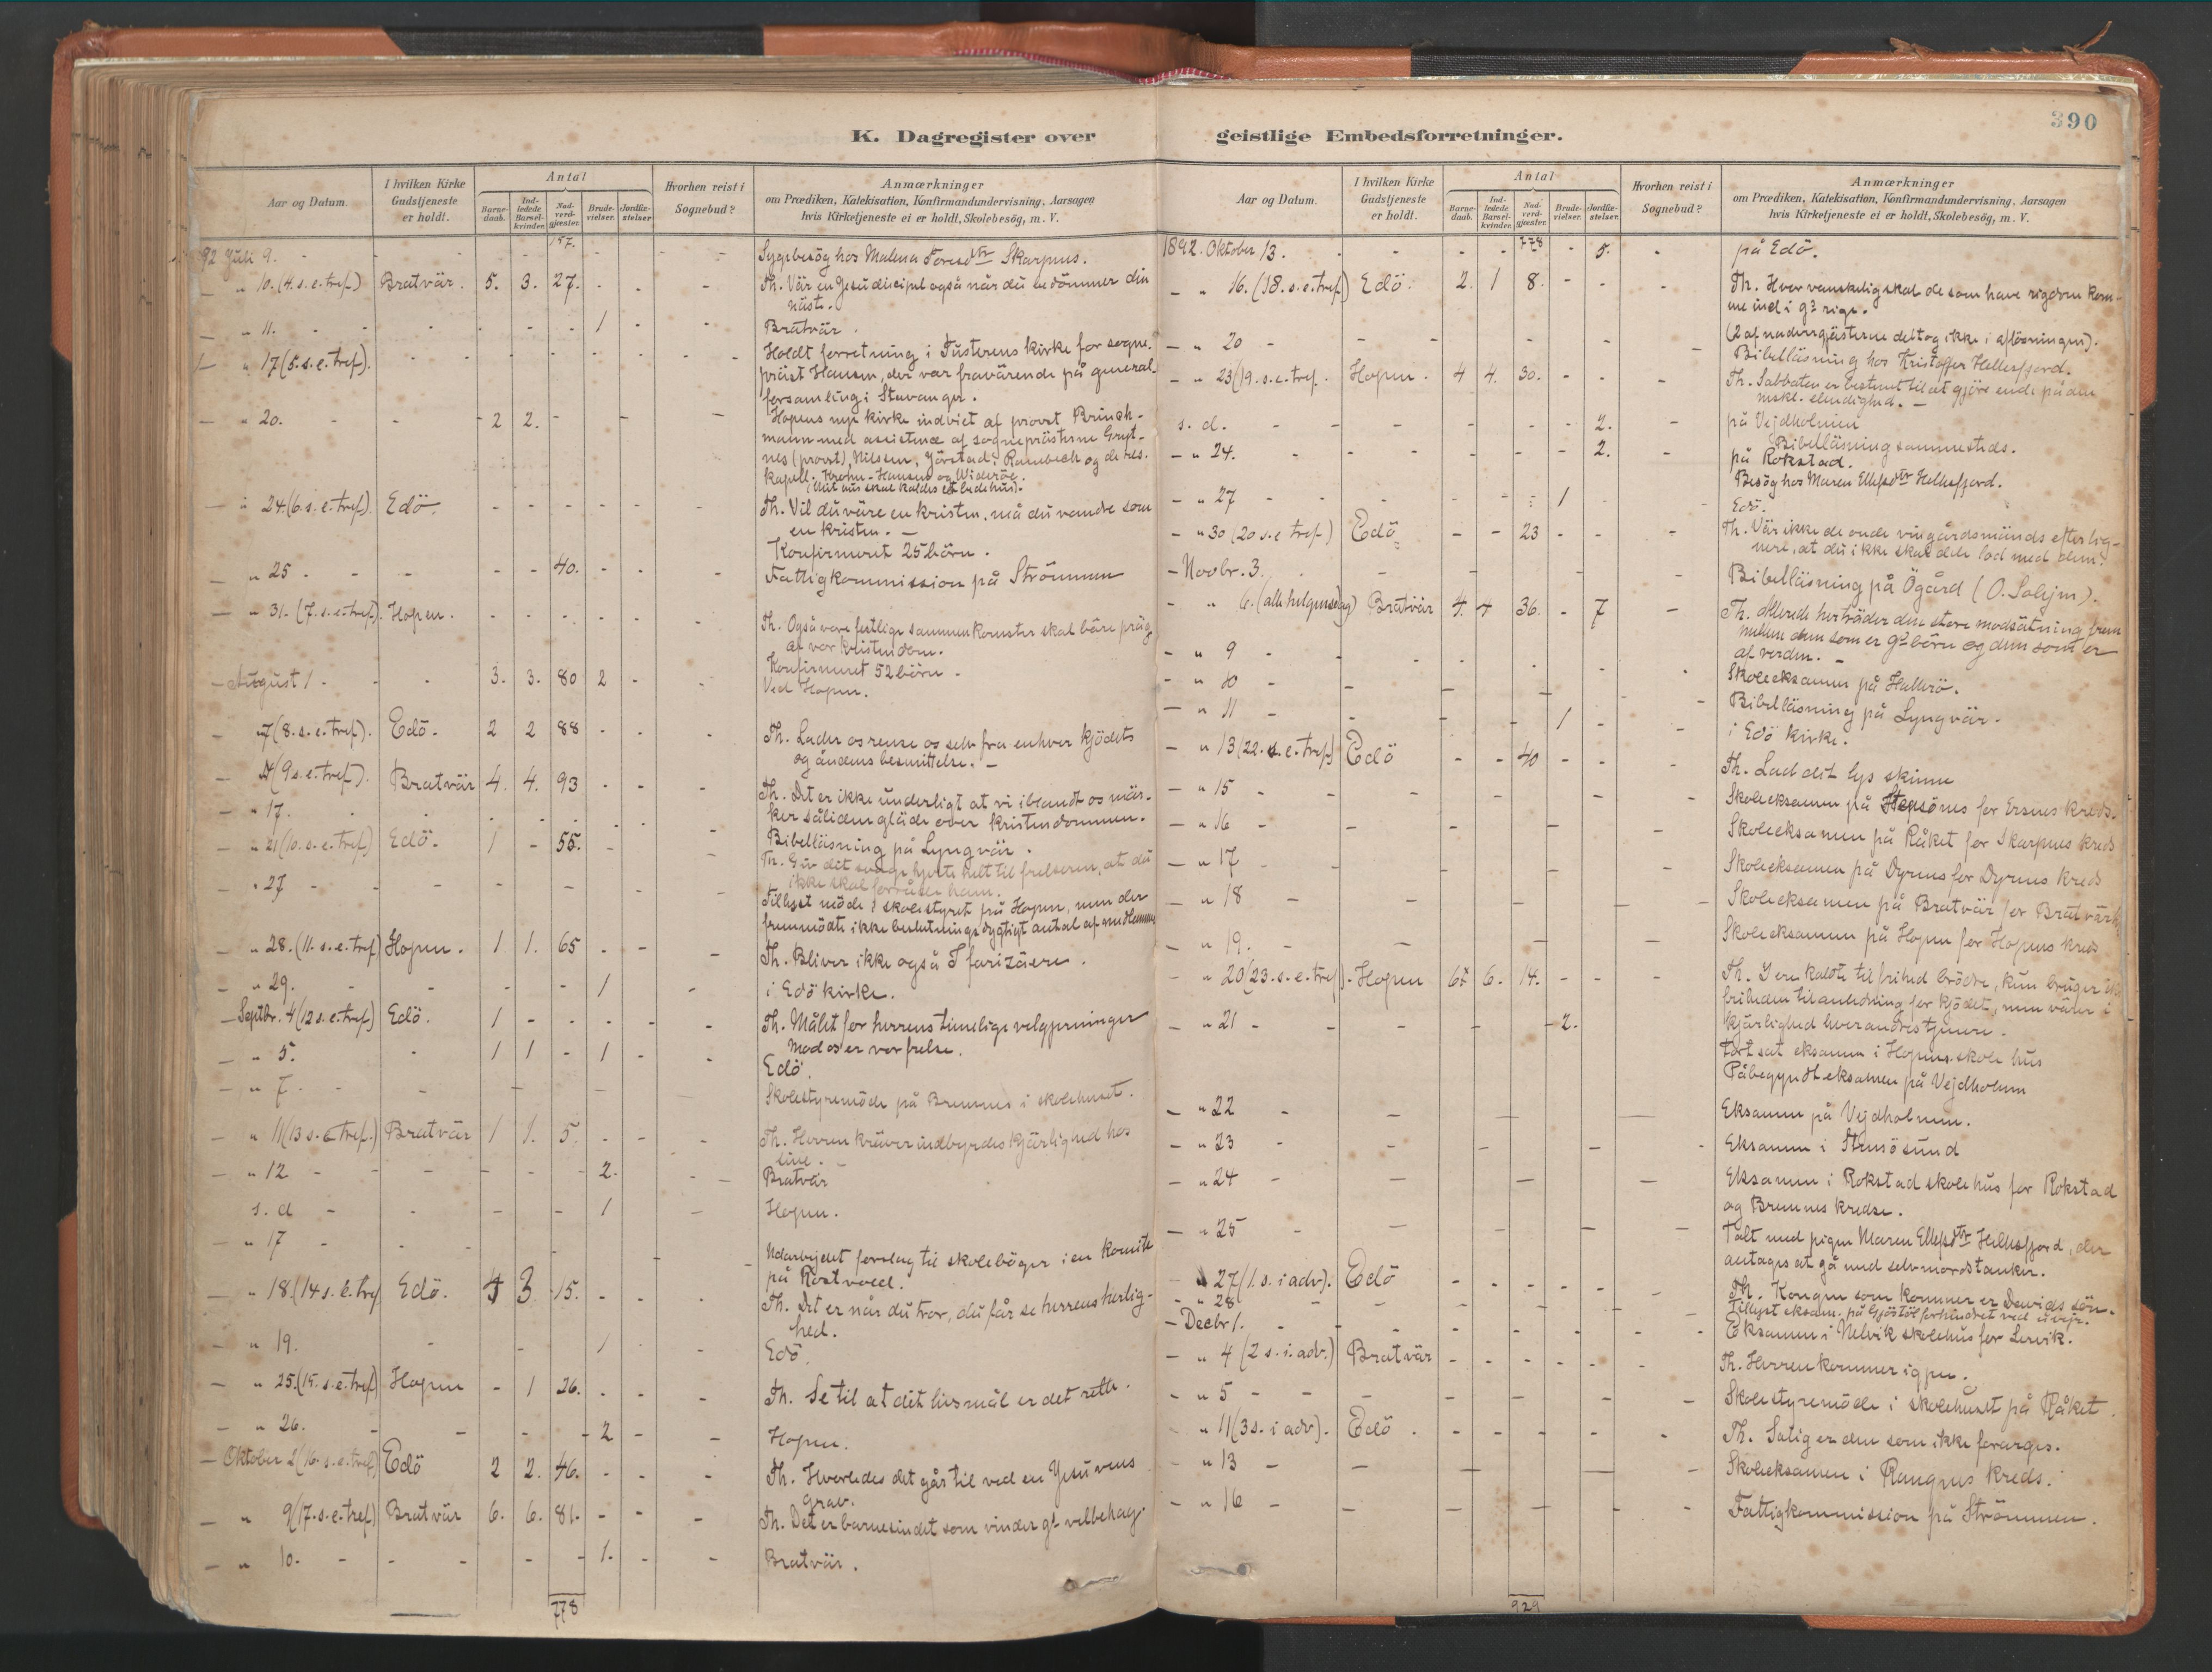 390
K. Dagregister over
Aar og Datum.
I hvilken Kirke Gudstjeneste er holdt.
Antal
Barnedaab.
Indledede Barselkvinder.
Nadverdgjester.
Brudevielser.
Jordfæstelser.
Hvorhen reist i Sognebud?
Anmærkninger
om Prædiken, Katekisation, Konfirmandundervisning, Aarsagen
hvis Kirketjeneste ei er holdt, Skolebesög, m. V.
157.
92 Juli 9. - - - - - - - Sygebesög hos Malena Skarpnes.
- " 10. (4. s. e. tref.) Bratvär. 5. 3. 27. - - - Th. Vär en Jesu discipel også når du bedömmer din
näste.
- " 11. - - - - - 1 - - Bratvär.
- " 17 (5. s. e. tref). - - - - - - - Holdt forretning i Tusterens kirke for sogne-
präst Hansen, der var fraværende på general-
forsamling i Stavanger.
- " 20. - - 2 2. - - - Hopens nye kirke indviet af provst Brinch-
mann med assistence af sogneprästerne
nes (provst), Nilsen, Jörstad, Rambech og de res.
kapell. Krohn-Hansen og Wideröe.
(Mit hus skal kaldes et bedehus).
- " 24. (6. s. e. tref). Edö. - - - - - - Th. Vil du väre en kristen, må du vandre som
en kristen. -
Konfirmeret 25 börn.
- " 25 - - - - 40. - - - Fattigkommission på Strömmen
- " 31. (7. s. e. tref). Hopen. - - - - - - Th. Også vore festlige sammenkomster skal bäre präg
af vor kristendom.
Konfirmeret 52 börn -
- August 1 - - - 3. 3. 80 2 - - Ved Hopen.
- " 7 (8. s. e. tref). Edö. 2 2 88 - - - Th. Lader os rense os selv fra enhver kjödets
og åndens besmittelse. -
- " 14 (9 s. e. tref). Bratvär 4. 4. 93 - - - Th. Det er ikke underligt at vi iblandt os mär-
ker så liden gläde over kristendommen.
- " 17. - - - - - - - Bibelläsning på Lyngvär.
- " 21 (10. s. e. tref) Edö. 1 - 55. - - Th. Giv dit unge hjerte helt til frelseren, at du
ikke skal forråde ham.
- " 27 - - - - - - - Tillyst möde i skolestyret på Hopen, men der
fremmödte ikke beslutningsdygtigt antal af medlemmer
- " 28. (11. s. e. tref) Hopen. 1 1. 65 - - - Th. Bliver ikke også I farizäere.
- " 29. - - - - - 1 - i Edö kirke.
- Septbr. 4 (12 s. e. tref) Edö. 1 - - - - - Th. Målet for herrens timelige velgjerninger
mod os er vor frelse.
- " 5. - 1 1 - 1 - - Edö.
- " 7 - - - - - Skolestyremöde på Bremnes i skolehuset.
- " 11 (13 s. e. tref.) Bratvär 1 1. 5. - - - Th. Herren kräver indbyrdes kjärlighed hos
sine. -
- " 12 - - - - - 2. - - Bratvär
s. d - - - - 1 - Hopen.
- " 17 - - - - - - Udarbeidet forslag til skoleböger i en komite
på Rostvold.
- " 18. (14 s. e. tref Edö. 4 3 15. - - - Th. Det er når du tror, du får se herrens herlig-
hed.
- " 19. - - 1 - Edö.
- " 25. (15. s. e. tref) Hopen - 1 26. - - - Th. Se til at dit livsmål er det rette.
- " 26. - - - - 2 - - Hopen.
- Oktober 2 (16. s. e. tref) Edö 2 2. 46. - - - Th. Hvorledes det går til ved en Jesu vens
grav.
- " 9 (17. s. e. tref) Bratvär 6. 6. 81. - - - Th. Det er barnesindet som vinder gs velbehag.
- " 10. - - - - - 1. - - Bratvär.
778
geistlige Embedsforretninger.
Aar og Datum.
I hvilken Kirke Gudstjeneste er holdt.
Antal
Barnedaab.
Indledede Barselkvinder.
Nadverdgjester.
Brudevielser.
Jordfæstelser.
Hvorhen reist i Sognebud?
Anmærkninger
om Prædiken, Katekisation, Konfirmandundervisning, Aarsagen
hvis Kirketjeneste ei er holdt, Skolebesög, m. V.
778
1892. Oktober 13. - - - - - 5. - på Edö.
- " 16. (18. s. e. tref) Edö. 2. 1 8. - - - Th. Hvor vanskelig skal de som have rigdom kom-
me ind i gs rige.
(2 af nadvergjästerne deltog ikke i aflösningen).
- " 20 - - - - - - - Bibelläsning hos Kristoffer Hellesfjord.
- " 23 (19. s. e. tref. Hopen. 4 4. 30. - - - Th. Sabbaten er bestemt til at gjöre ende på den
mskl. elendighed. -
s. d. - - - - - - 2. - på Vejdholmen
Bibelläsning sammesteds.
- " 24. - - - - - - 2. på Rokstad.
Besög hos Maren Ellefsdtr Hellesfjord.
- " 27 - - - - - 1 - - Edö.
- " 30 (20 s. e tref) Edö - - 23 - - - Th. Vär ikke de onde vingårdsmänds efterlig-
nere, at du ikke skal dele lod med dem!
- Novbr. 3. - - - - - Bibelläsning på Ögård (O. Solejm).
- " 6. (alle helgensdag) Bratvär 4. 4 36. - 7 - Th. Allerede her träder den store modsätning frem
mellem dem som er gs börn og dem som er
af verden. -
- " 9 - - - - - - Skoleeksamen på Hallerö.
- " 10 - - - - - - Bibelläsning på Lyngvär.
- " 11 - - - - 1 - - i Edö kirke.
- " 13 (22. s. e. tref) Edö - - 40 - - - Th. Lad dit lys skinne
- " 15 - - - - - - Skoleeksamen på for Ersnes kreds.
- " 16 - - - - - Skoleeksamen på Råket for Skarpnes kreds
- " 17 - - - - - Skoleeksamen på Dyrnes for Dyrnes kreds
- " 18 - - - - - Skoleeksamen på Bratvär for Bratvär
- " 19. - - - - Skoleeksamen på Hopen for Hopens kreds
- " 20 (23. s. e. tref). Hopen 6. 6. 14. - - - Th. I ere kaldte til frihed brödre, kun bruger ikke
friheden til anledning for kjödet, men värer i
kjärlighed hverandres tjenere.
- " 21 - - - - - 2. Fortsat eksamen i Hopens skolehus
Påbegyndt eksamen på Vejdholmen
- " 22 - - - - Eksamen på Vejdholmen.
- " 23 - - - - Eksamen i Stensösund
- " 24 - - - - Eksamen i Rokstad skolehus for Rokstad
og Bremnes kredse.
- " 25 - - - - - Talt med pigen Maren Ellefsdtr Hellesfjord, der
antages at gå med selvmordstanker.
- " 27 (1. s. i adv). Edö - - - - - - Th. Kongen som kommer er Davids sön.
- " 28 - - - - - Tillyst eksam. på Gjöstöl forhindret ved uvejr.
- Decbr 1. - - - - - - - Eksamen i Nelvik skolehus for Lervik.
- " 4 (2 s. i. adv.) Bratvär - - - - - - Th. Herren kommer igjen.
- " 5 - - - - - - - Skolestyremöde i skolehuset på Råket.
- " 11 (3 s. i adv). Edö. - - - - - - Th. Salig er den som ikke forarges.
- " 13 - - - - - Skoleeksamen i Rangnes kreds.
- " 16 - - - - - - Fattigkommission på Strömmen.
929